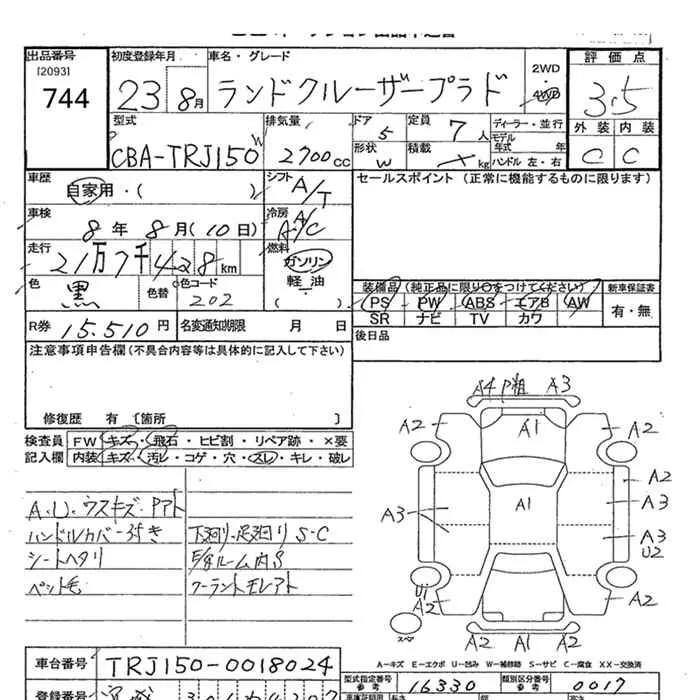 出品番号
[2093]
744
初度登録年月
23 8月
車名・グレード
ランドクルーザープラド
2WD
4WD
評価点
3.5
外装 内装
C C
型式
CBA-TRJ150W
排気量
2700cc
ドア
5
定員
7人
ディーラー・並行
モデル
年式 年
形状
W
積載
kg
ハンドル 左・右
車歴
自家用・( )
シフト
A/T
セールスポイント (正常に機能するものに限ります)
車検
8年 8月(10日)
冷房
A/C
走行
21万7千428km
燃料
ガソリン
軽油
色
黒
色替
色コード
202
装備品 (純正品に限り○をつけてください)
新車保証書
PS PW ABS エアB AW
SR ナビ TV カワ
有・無
R券 15.510円
名変通知期限 月 日
後日品
注意事項申告欄(不具合内容等は具体的に記入して下さい)
修復歴 有 〔箇所 〕
検査員
記入欄
FW キズ・飛石・ヒビ割・リペア跡・×要
内装 キズ・汚レ・コゲ・穴・スレ・キレ・破レ
A.U.ウスキズ.Pアト
ハンドルカバー付き
シートヘタリ
ペット毛
下廻り.足廻り S-C
E/gルーム内S
クーラントモレアト
A4 P粗 A3
A2 A1 A2
A1
A2
A3
A3
A3
U2
U1
A2 A2
スペア
A2 A1 A2
A-キズ E-エクボ U-凹み W-補修跡 S-サビ C-腐食 XX-交換済
車台番号
TRJ150-0018024
型式指定番号
参考
16330
類別区分番号
参考
0017
登録番号